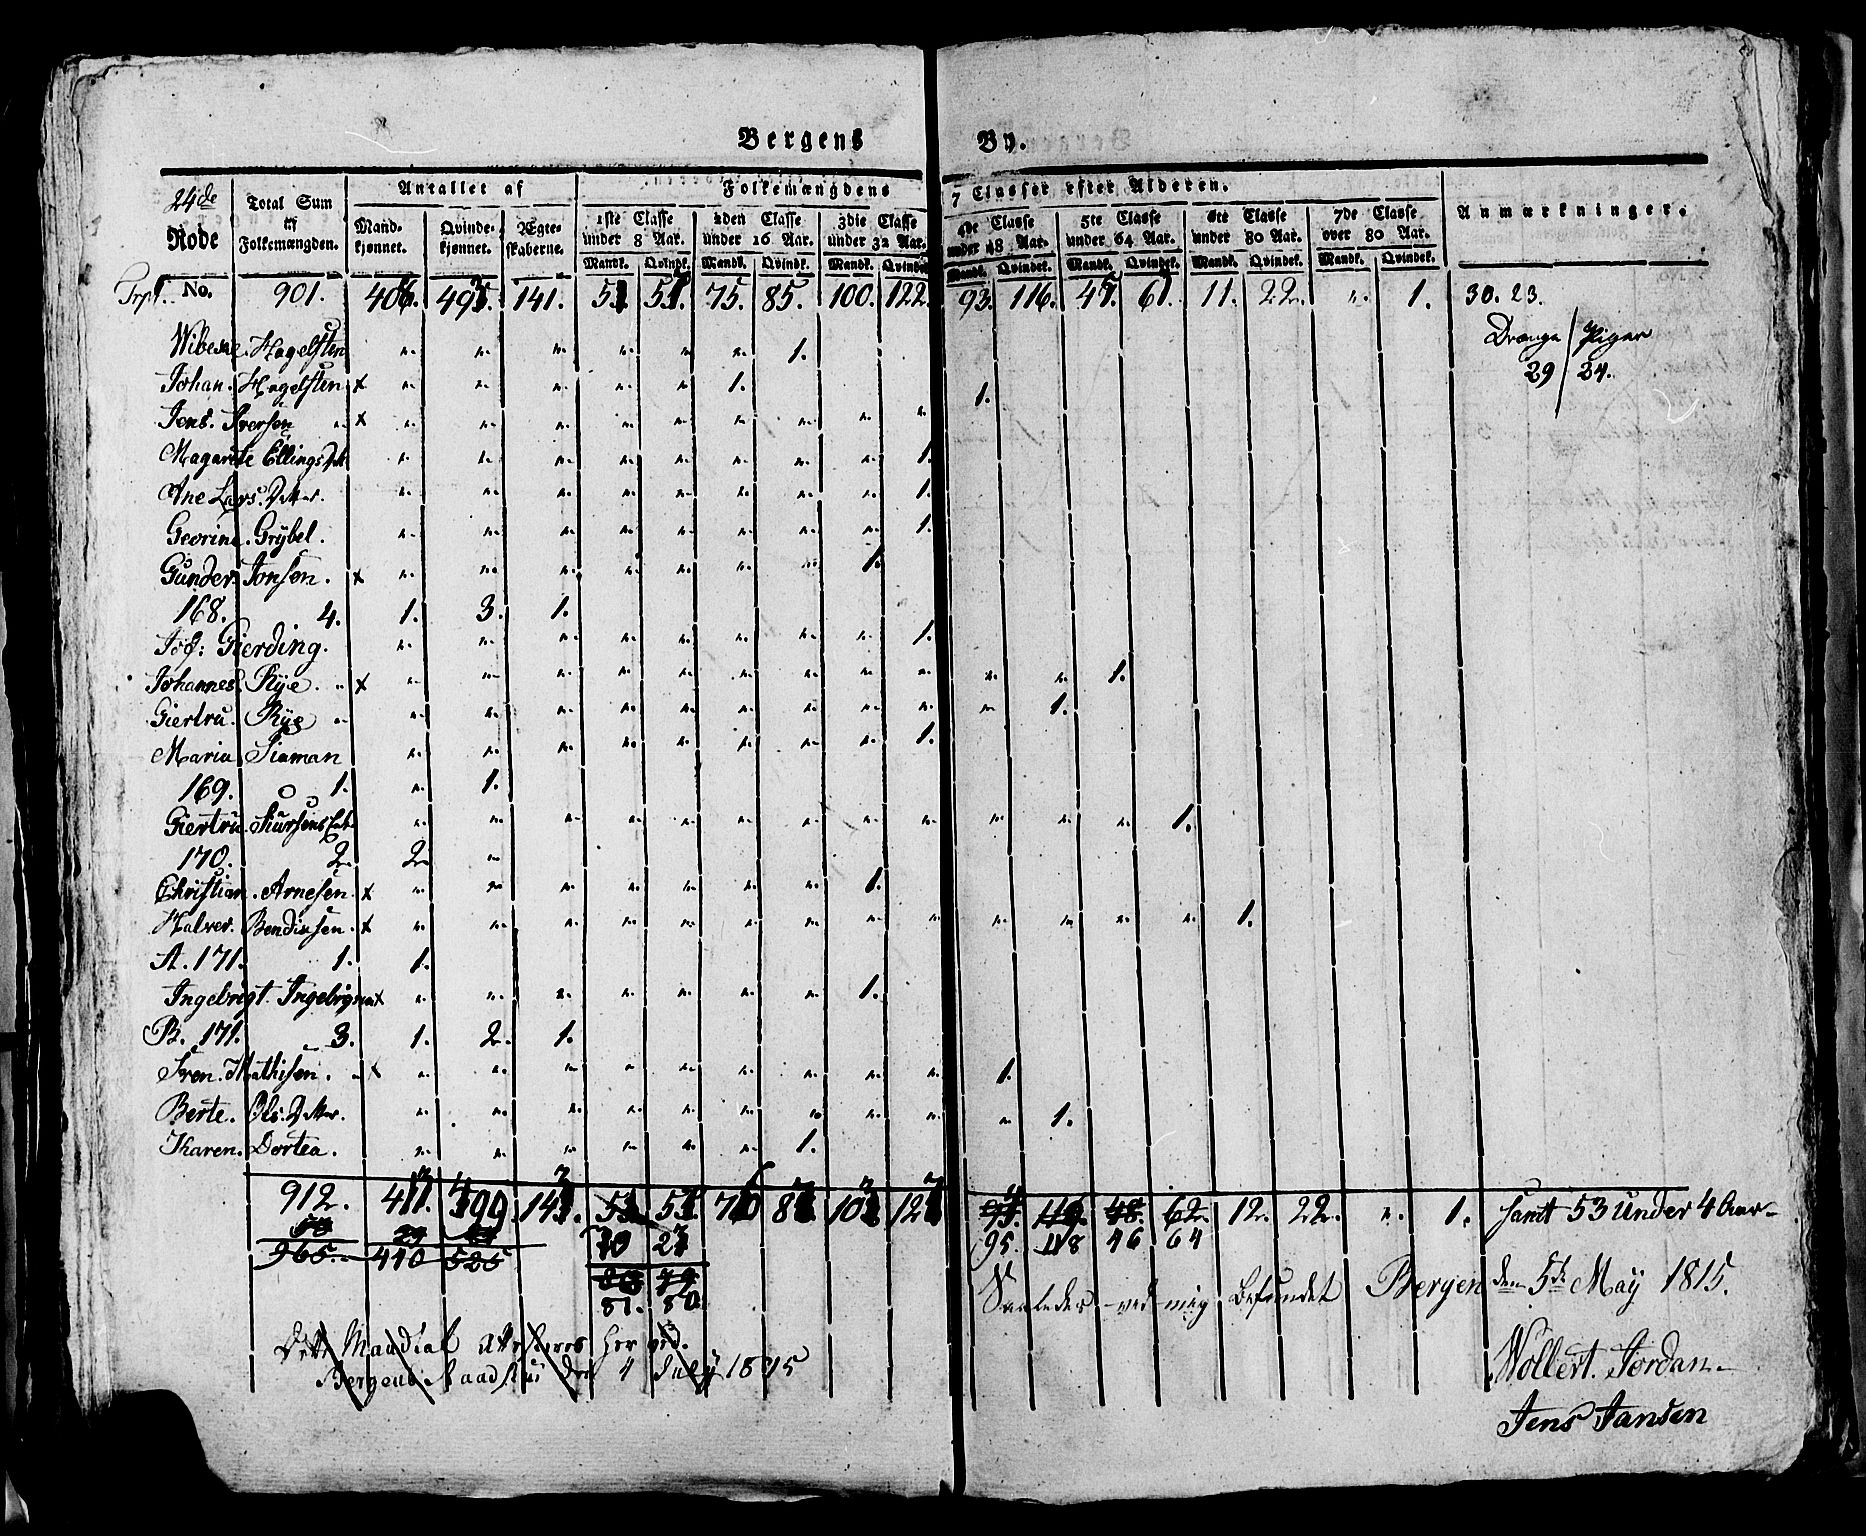 Bergens By.
24de Rode No. | Total Sum af Folkemængden. | Antallet af | Folkemængdens 7 Classer efter Alderen. | Anmærkninger.
Mandkjønnet. | Qvindekjønnet. | Ægteskaberne. | 1ste Classe under 8 Aar. | 2den Classe under 16 Aar. | 3die Classe under 32 Aar. | 4de Classe under 48 Aar. | 5te Classe under 64 Aar. | 6te Classe under 80 Aar. | 7de Classe over 80 Aar.
Mandk. Qvindk. Mandk. Qvindk. Mandk. Qvindek. Mandk. Qvindek. Mandk. Qvindek. Mandk. Qvindek. Mandk. Qvindek.
Trpt. 901. 406. 495. 141. 51 51 75. 85. 100. 122. 93. 116. 47. 61. 11. 22. " 1. 30. 23.
Drænge / Piger
29 / 24.
Wibeke Hagelsten " " " " " " 1.
Johan. Hagelsten x " " " " " 1.
Jens. Iversen " x " " " " " " " " " 1.
Magarete Ellings Dtr " " " " " " " " 1.
Ane Lars. Datter. " " " " " " " " 1.
Georine. Grybel. " " " " " " " " 1.
Gunder. Jonsen. x " " " " " " " 1.
168. 4. 1. 3. 1.
Jos: Gierding. " " " " " " " " 1.
Johannes. Rye. " x " " " " " " " " " " " 1.
Giertru. Rye " " " " " " " " " " " 1.
Maria Siaman " " " " " " " " 1.
169. 1. " 1.
Giertru. Siursens " " " " " " " " " " " " 1.
170. 2. 2. "
Christian. Arnesen. x " " " " " " " 1.
Halver. Bendixsen. x " " " " " " " " " " " " " 1.
A. 171. 1. 1.
Ingebrigt. Ingebrigtsen x " " " " " " " 1.
B. 171. 3. 1. 2. 1.
Iven. Mathisen. " x " " " " " " " " " 1.
Berte. Ols. Datter. " " " " " " " " " " 1.
Karen. Dortea. " " " " " " 1.
912. 411. 12. 22. " 1. Samt 53 under 4 Aar
965. 440 525 95. 118 46 64
81. 80
Saaledes ved mig Befundet Bergen den 5te May 1815.
Dette Mandtal Atesteres her ved.
Bergens Raadstue den 4 July 1815
Wollert. Jordan
Jens Jansen